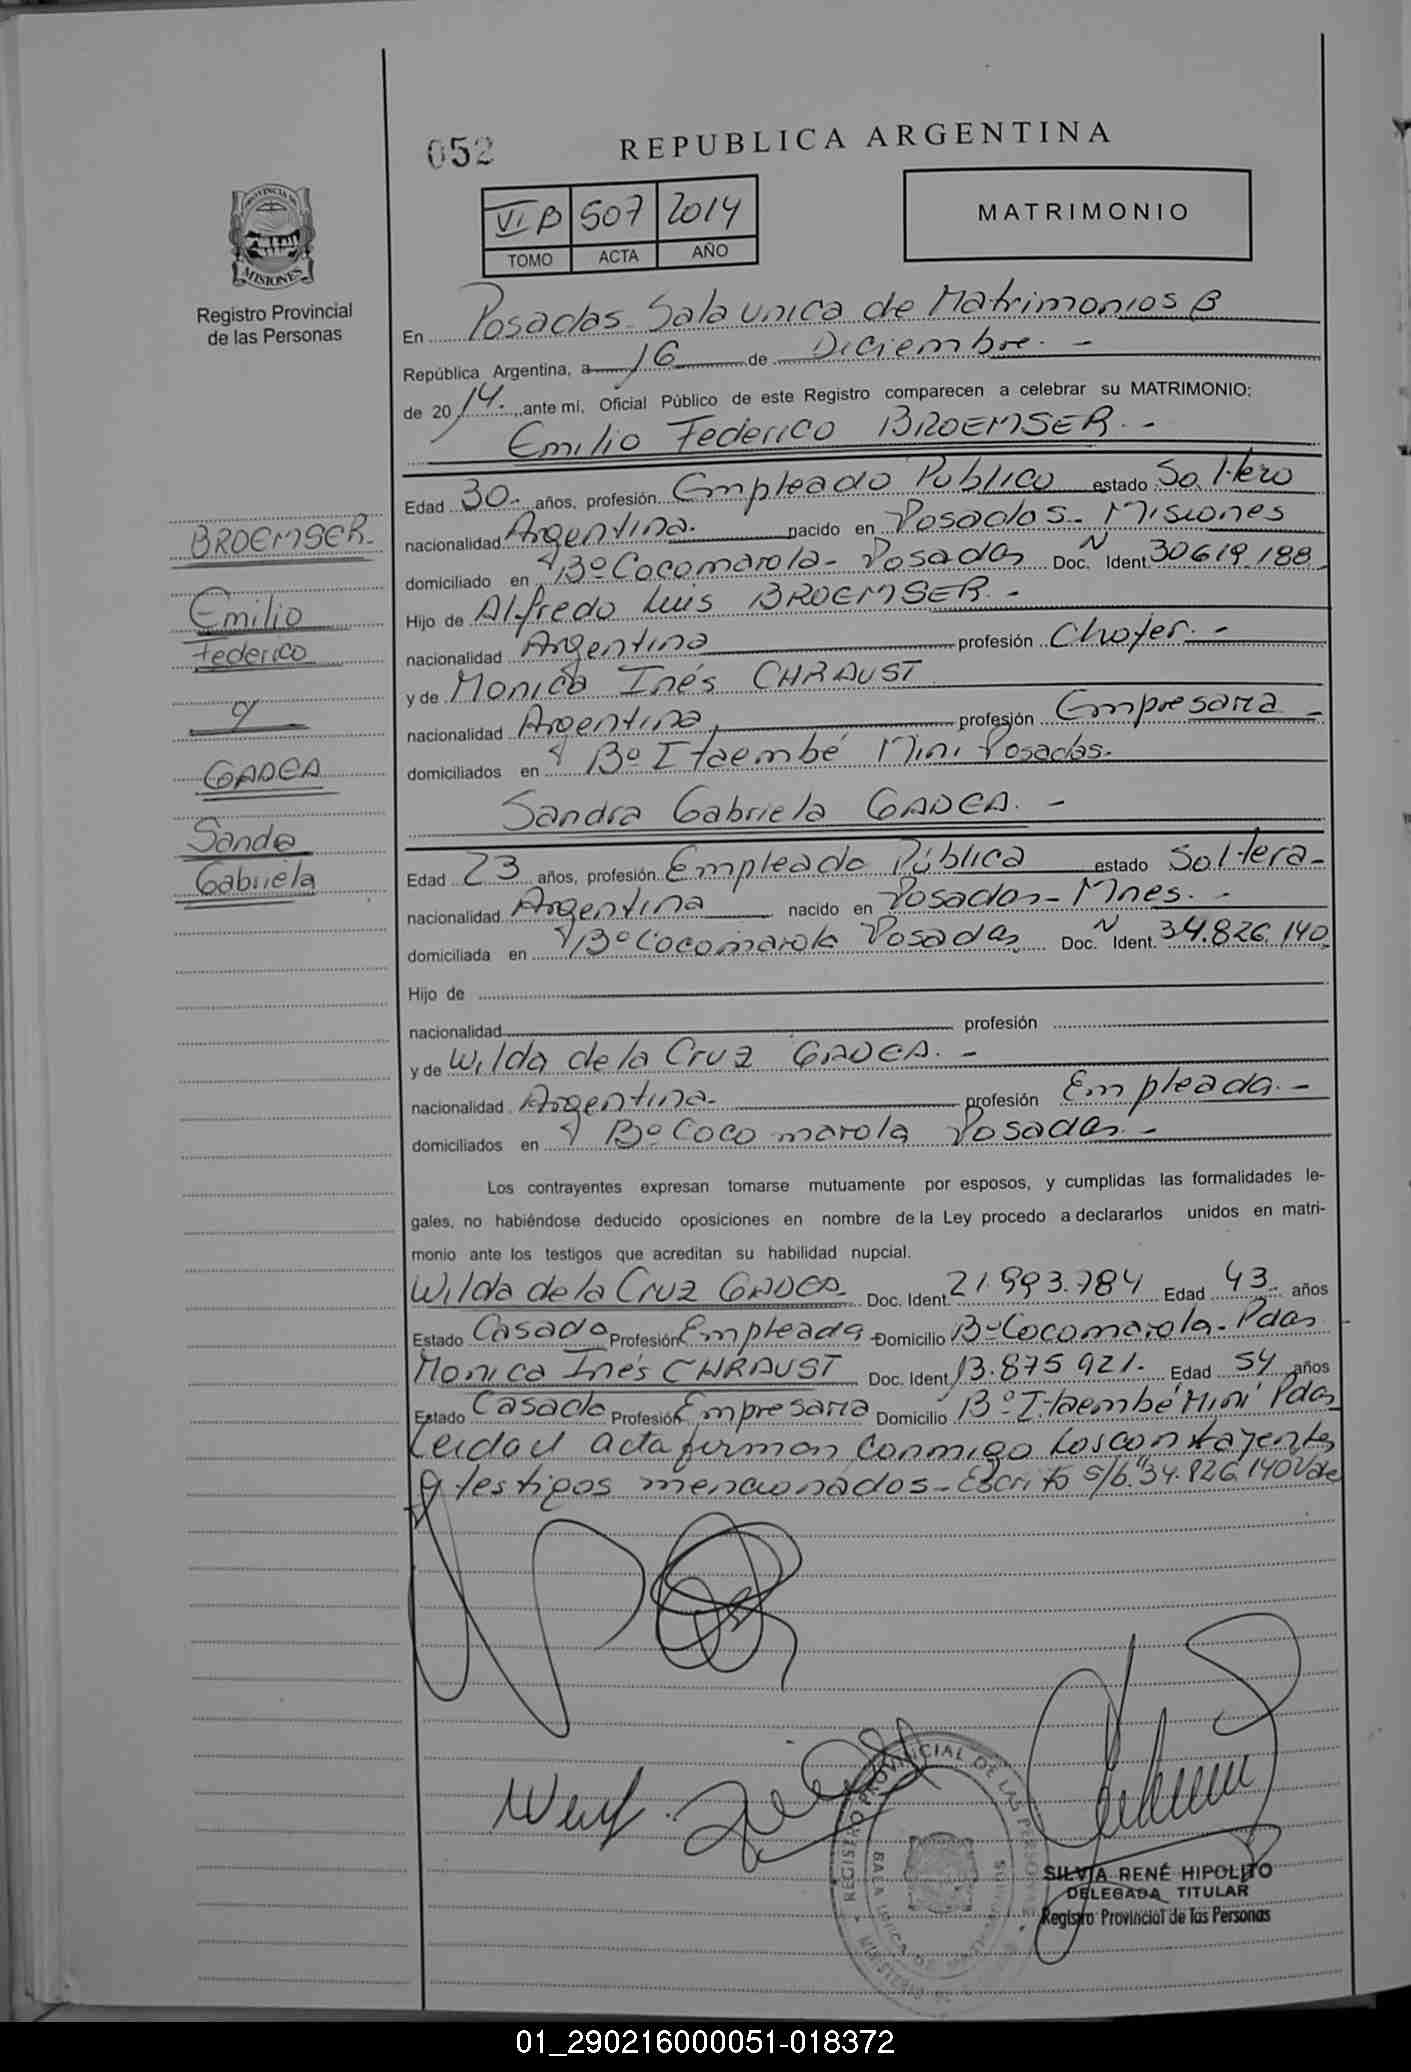 052
REPUBLICA ARGENTINA
VI B 507 2014
TOMO ACTA AÑO
MATRIMONIO
PROVINCIA DE
MISIONES
Registro Provincial
de las Personas
En Posadas Sala unica de Matrimonios B
República Argentina, a 16 de Diciembre. -
de 20 14. ante mi, Oficial Público de este Registro comparecen a celebrar su MATRIMONIO:
Emilio Federico BROEMSER. -
Edad 30. años, profesión Empleado Publico estado Soltero
nacionalidad Argentina. nacido en Posadas - Misiones
domiciliado en Bº Cocomarola - Posadas Doc. N Ident. 30619.188
Hijo de Alfredo Luis BROEMSER. -
nacionalidad Argentina profesión Chofer. -
y de Monica Inés CHRAUST
nacionalidad Argentina profesión Empresaria -
domiciliados en Bº Itaembé Mini Posadas.
Sandra Gabriela GADEA. -
Edad 23 años, profesión Empleado Pública estado Soltera -
nacionalidad Argentina nacido en Posadas - Mnes. -
domiciliada en Bº Cocomarola Posadas Doc. N Ident. 34.826.140
Hijo de
nacionalidad profesión
y de Wilda de la Cruz GADEA. -
nacionalidad Argentina. profesión Empleada. -
domiciliados en Bº Cocomarola Posadas. -
Los contrayentes expresan tomarse mutuamente por esposos, y cumplidas las formalidades le-
gales, no habiéndose deducido oposiciones en nombre de la Ley procedo a declararlos unidos en matri-
monio ante los testigos que acreditan su habilidad nupcial.
Wilda de la Cruz GADEA. Doc. Ident. 21.993.784 Edad 43. años
Estado Casado Profesión Empleada Domicilio Bº Cocomarola - Pdas
Monica Inés CHRAUST Doc. Ident. 13.875921. Edad 54 años
Estado Casado Profesión Empresaria Domicilio Bº Itaembé Mini Pdas
Leida el acta firman conmigo los contrayentes
y testigos mencionados - Escrito s/b. "34.826.140 Vale
BROEMSER -
Emilio
Federico
y
GADEA
Sandra
Gabriela
REGISTRO PROVINCIAL DE LAS PERSONAS
SILVIA RENÉ HIPOLITO
DELEGADA TITULAR
Registro Provincial de las Personas
01_290216000051-018372